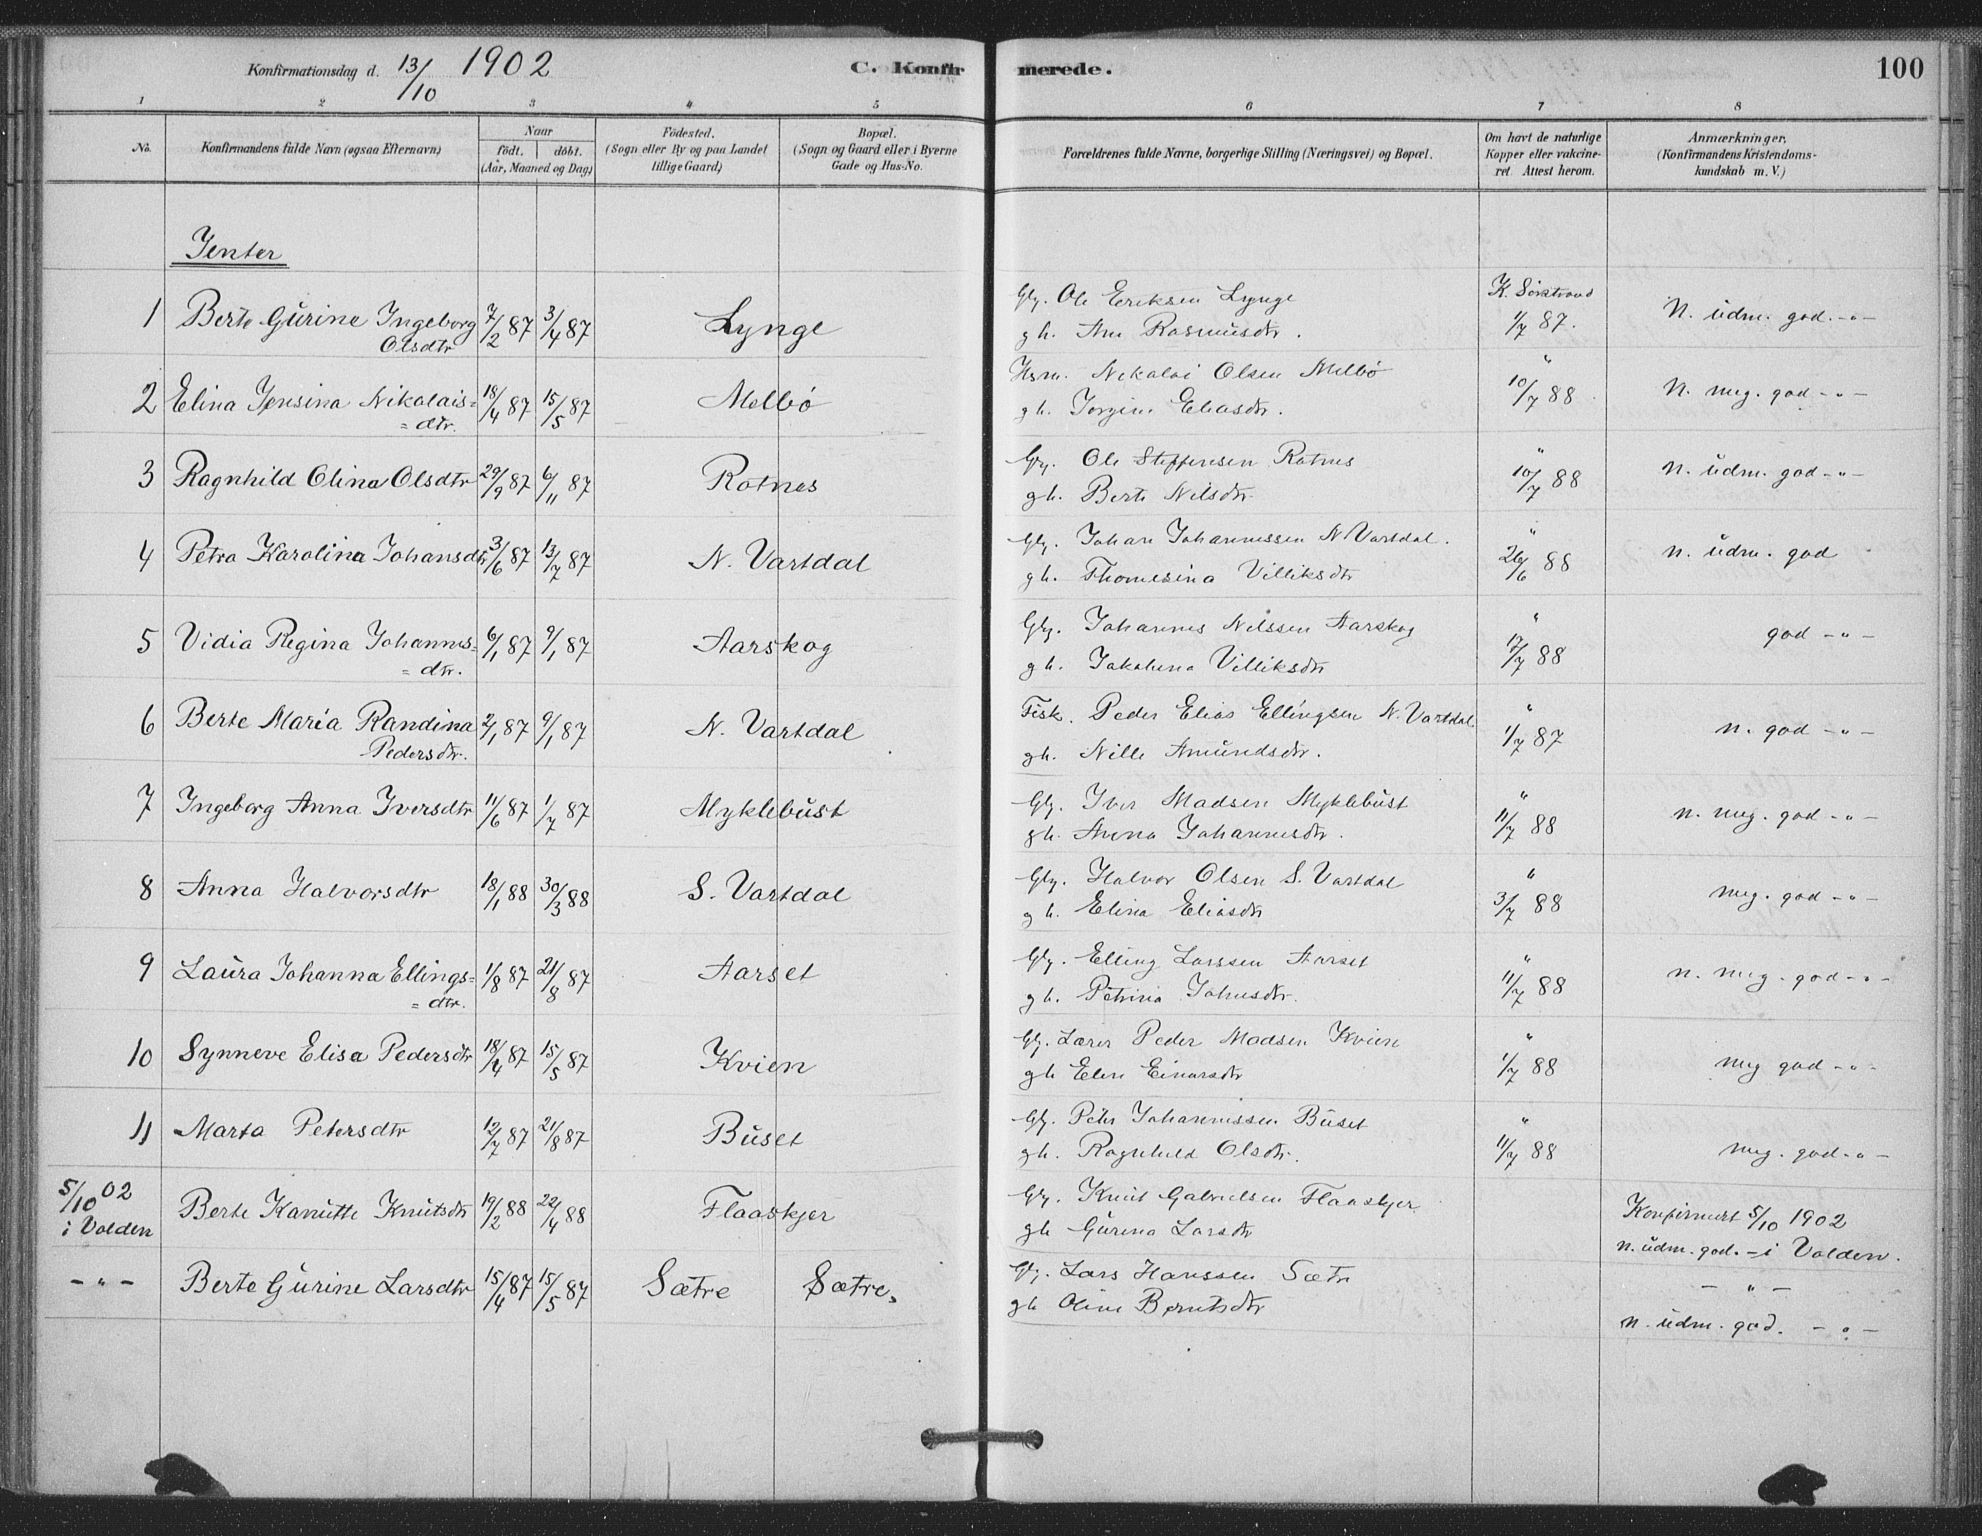 Konfirmationsdag d. 13/10 1902 C. Konfirmerede. 100
1 2 3 4 5 6 7 8
No. Konfirmandens fulde Navn (ogsaa Efternavn) Naar födt. döbt. (Aar, Maaned og Dag) Födested. (Sogn eller By og paa Landet tillige Gaard) Bopæl. (Sogn og Gaard eller i Byerne Gade og Hus-No. Forældrenes fulde Navne, borgerlige Stilling (Næringsvei) og Bopæl. Om havt de naturlige Kopper eller vakcineret. Attest herom. Anmærkninger. (Konfirmandens Kristendomskundskab m. V.)
Jenter
1 Berte Gurine Ingeborg 7/2 87 3/4 87 Lynge Gbr. Ole Eriksen Lynge K. Sörstrand
Olsdtr gh. Ane Rasmusdtr. 1/7 87. N. udm. god. -"-
2 Elina Jensina Nikolais= 18/4 87 15/5 87 Melbö Hsm. Nikolai Olsen Melbö "
=dtr. gh. Jorgine Eliasdtr. 10/7 88 N. meg. god -"-
3 Ragnhild Olina Olsdtr 29/9 87 6/11 87 Rotnes Gbr. Ole Steffensen Rotnes "
gh. Berte Nilsdtr. 10/7 88 N. udm. god -"-
4 Petra Karolina Johansdtr 3/6 87 13/7 87 N. Vartdal Gbr. Johan Johannessen N. Vartdal. "
gh. Thomesina Villiksdtr 26/6 88 n. udm. god
5 Vidia Regina Johannes= 6/1 87 9/1 87 Aarskog Gbr. Johannes Nilssen Aarskog "
=dtr. gh. Jakobina Villiksdtr 17/7 88 god -"-
6 Berte Maria Randina 2/1 87 9/1 87 N. Vartdal Fisk. Peder Elias Ellingsen N. Vartdal "
Pedersdtr. gh. Nille Amundsdtr. 1/7 87 n. god -"-
7 Ingeborg Anna Iversdtr 11/6 87 1/7 87 Myklebust Gbr. Iver Madsen Myklebust "
gh. Anna Johannesdtr. 11/7 88 n. meg. god -"-
8 Anna Halvorsdtr 18/1 88 30/3 88 S. Vartdal Gbr. Halvor Olsen S. Vartdal "
gh. Elina Eliasdtr 3/7 88 meg. god -"-
9 Laura Johanna Ellings= 1/8 87 21/8 87 Aarset Gbr. Elling Larssen Aarset "
=dtr. gh. Petrina Johnsdtr. 11/7 88 n. meg. god -"-
10 Synneve Elisa Pedersdtr 18/4 87 15/5 87 Kvien Gbr. Lærer Peder Madsen Kvien "
gh Elen Einarsdtr 1/7 88 meg god -"-
11 Marta Petersdtr 12/7 87 21/8 87 Buset Gbr. Peter Johannessen Buset "
gh. Ragnhild Olsdtr. 11/7 88 meg. god -"-
5/10 02 i Volden Berte Kanutte Knutsdtr 19/2 88 22/4 88 Flaaskjer Gbr. Knut Gabrielsen Flaaskjer Konfirmert 5/10 1902
gh Gurina Larsdtr n. udm. god. - i Volden.
-"- Berte Gurine Larsdtr 15/4 87 15/5 87 Sætre Sætre. Gbr. Lars Hanssen Sætre -"-
gh Oline Berntsdtr n. udm. god. -"-